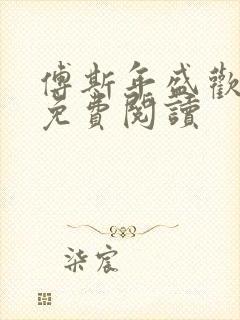 傅斯年盛歡
免費閱讀
柒宸